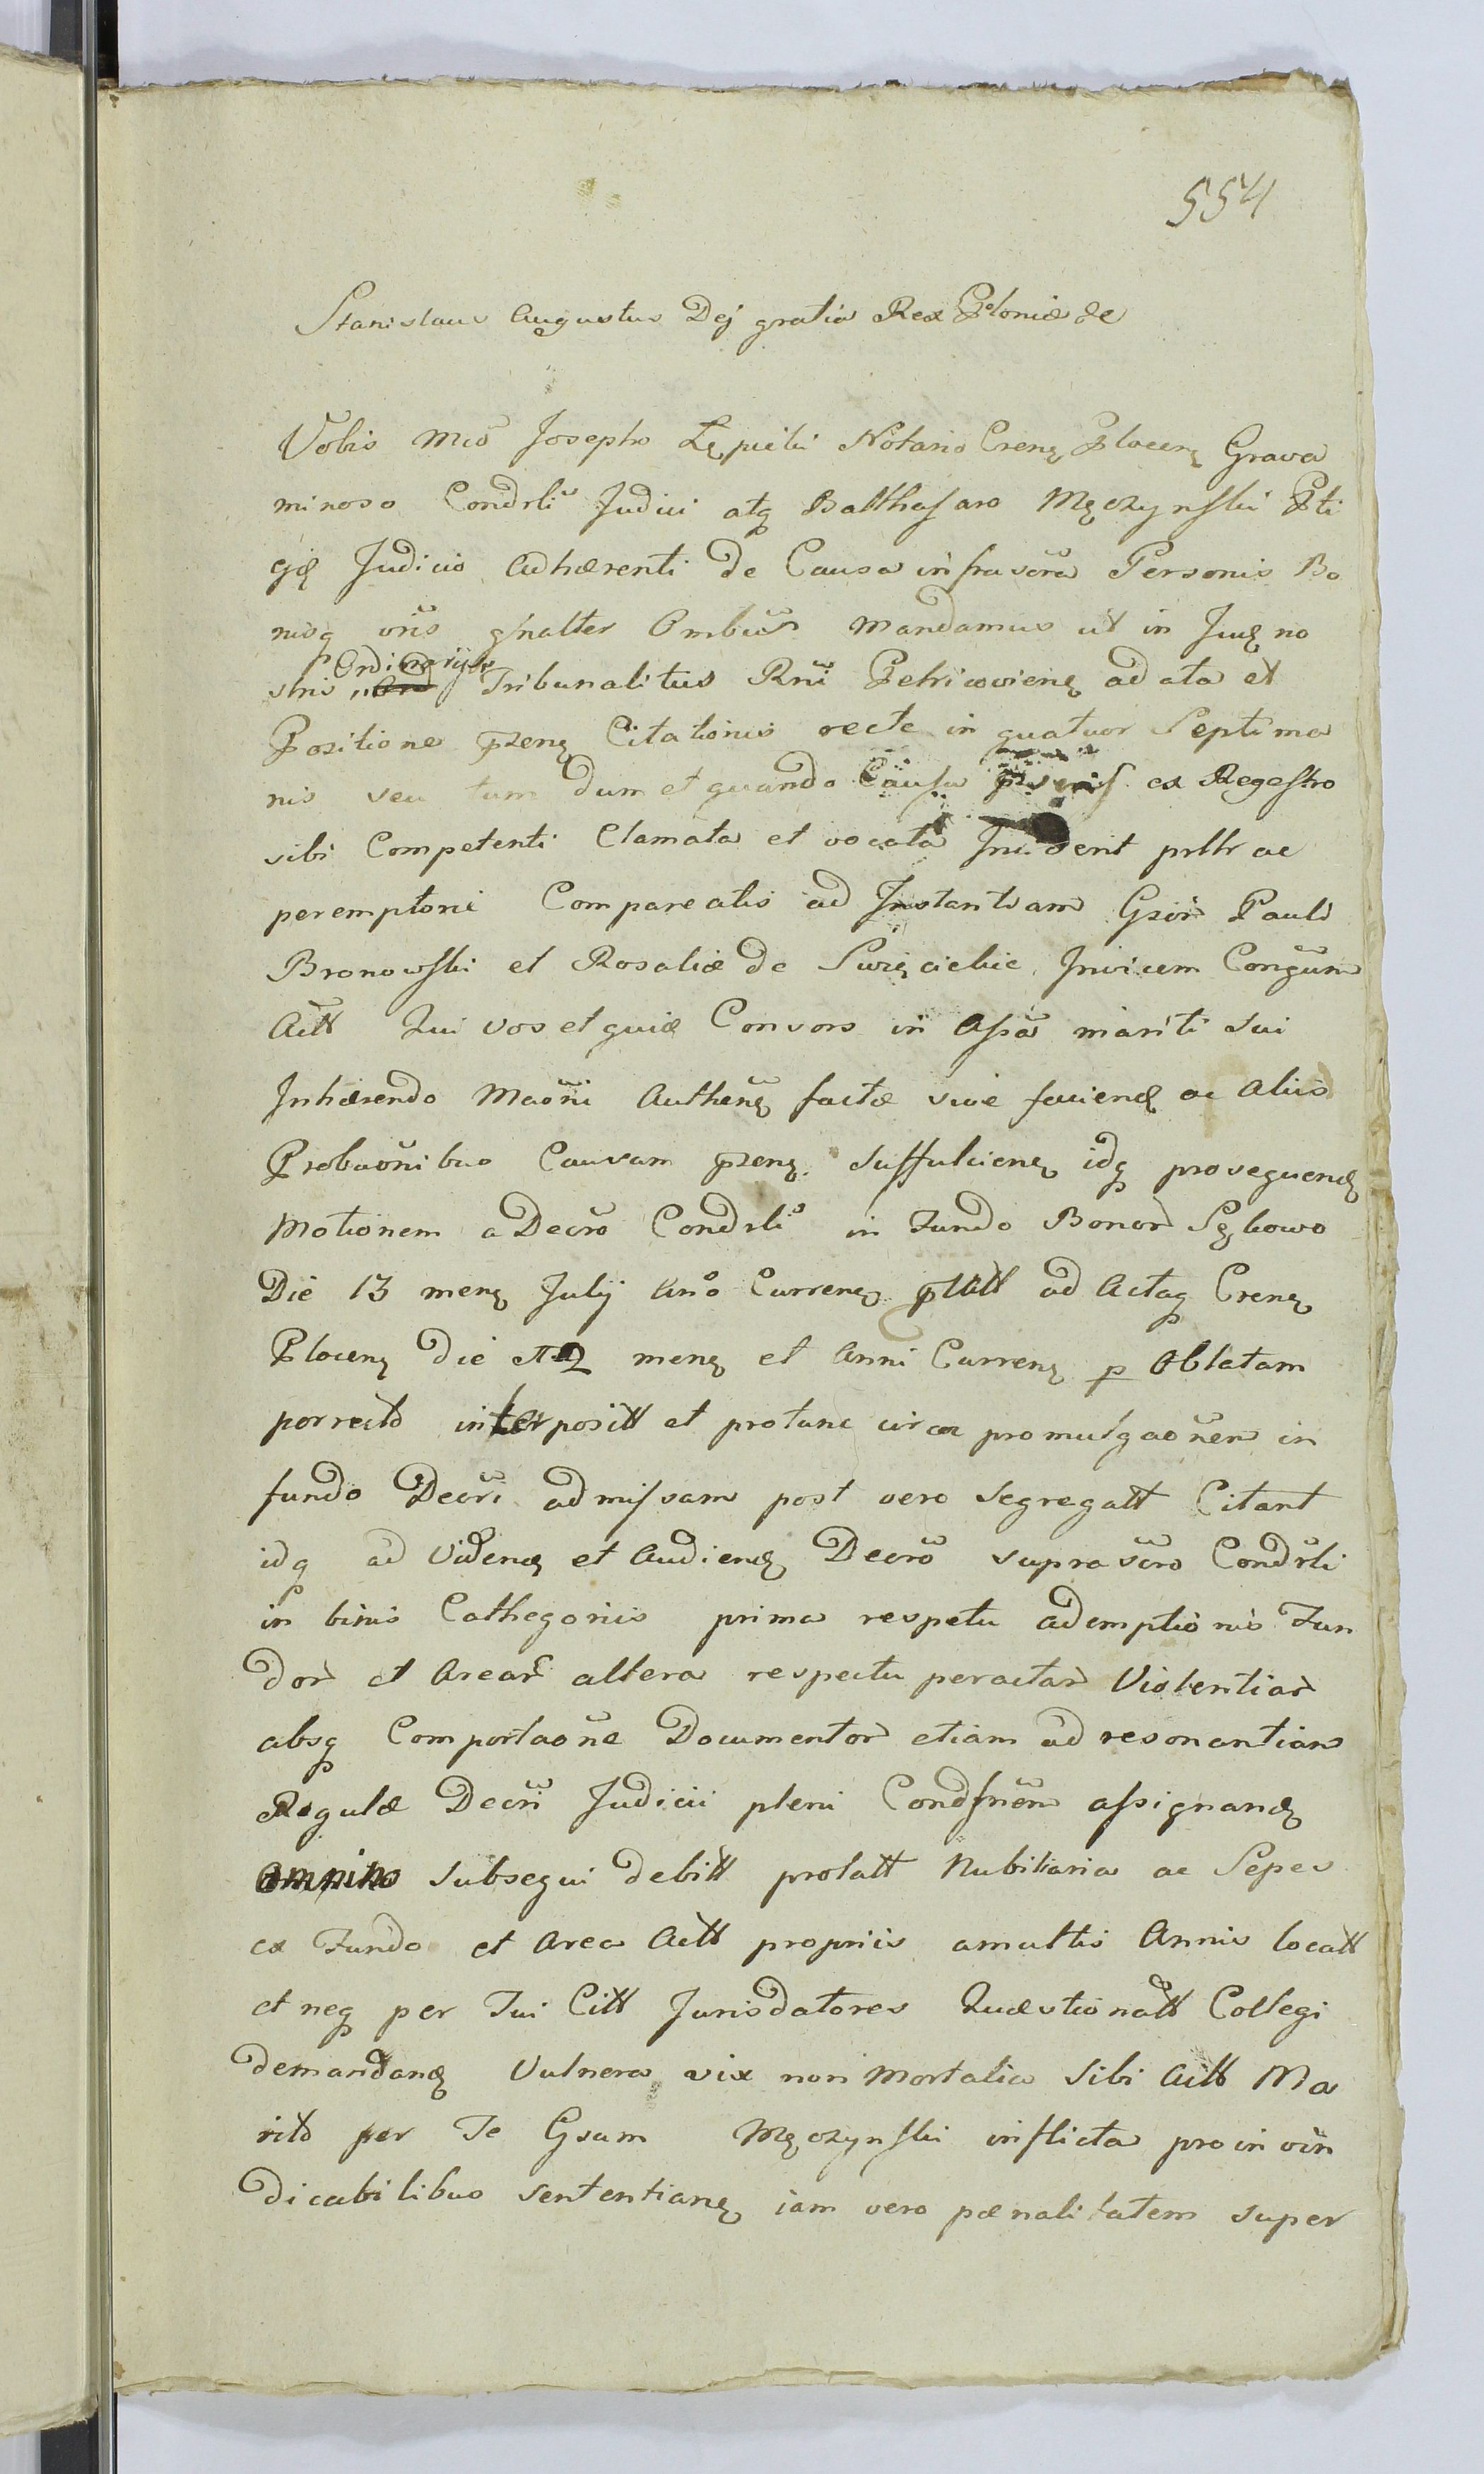 554
Stanislaus Augustus Dej gratia Rex Poloniæ &c
Vobis Mco Josepho Lępicki Notario Crenę Plocenę Grava
minoso Condrli Judici atq Balthasaro Męczynski Pti
gię Judicio Adhærenti de Causa infrascra Personis Bo
nisq vris gnalter Ombus mandamus ut in Judę no
Ordinarijs
stris Tribunalitus Rni Petricovienę ad ata et
Positione pzenę Citationis recte in quatuor Septima
nis seu tum dum et quando Causa ex Regestro
sibi Competenti Clamata et vocata Inciderit plltr ac
peremptorie Compareatis ad Instantiam Gsor Pauli
Bronowski et Rosaliæ de Swięcickie Invicem Congum
Actt Qui vos et quia Consors in Assa mariti sui
Inhærendo Maoni Authenę factæ sive faciendę ac Aliis
Probaonibus Causam pzenę suffulcienę idq prosequendę
Motionem a Decro Condrli in Fundo Bonor Sękowo
Die 13 menę Julij Ano Currenę platt ad Actaq Crenę
Plocenę die menę et Anni Currenę p Oblatam
porrecto interpositt et protunc circa promulgaonem in
fundo Decri admissam post vero segregatt Citant
idq ad Videndę et Audiendę Decro suprascro Condrli
in binis Cathegoriis prima respetu ademptionis Fun
dor et Arear altera respectu peractar Violentiar
absq Comportaone Documentor etiam ad resonantiam
Regulæ Decri Judicii pleni Condsnem assignandę
omnino subsequi debitt prolatt Nubiliaria ac Sepes
ex Fundo et Area Actt propriis a multis Annis locatt
et neq per Tui Citt Jurisdatores Quæstionatt Collegi
demandandę Vulnera vix non Mortalia Sibi Actt Ma
rito per Te Gsum Męczynski inflicta pro in vin
dicabilibus sententianę iam vero pænalitatem super